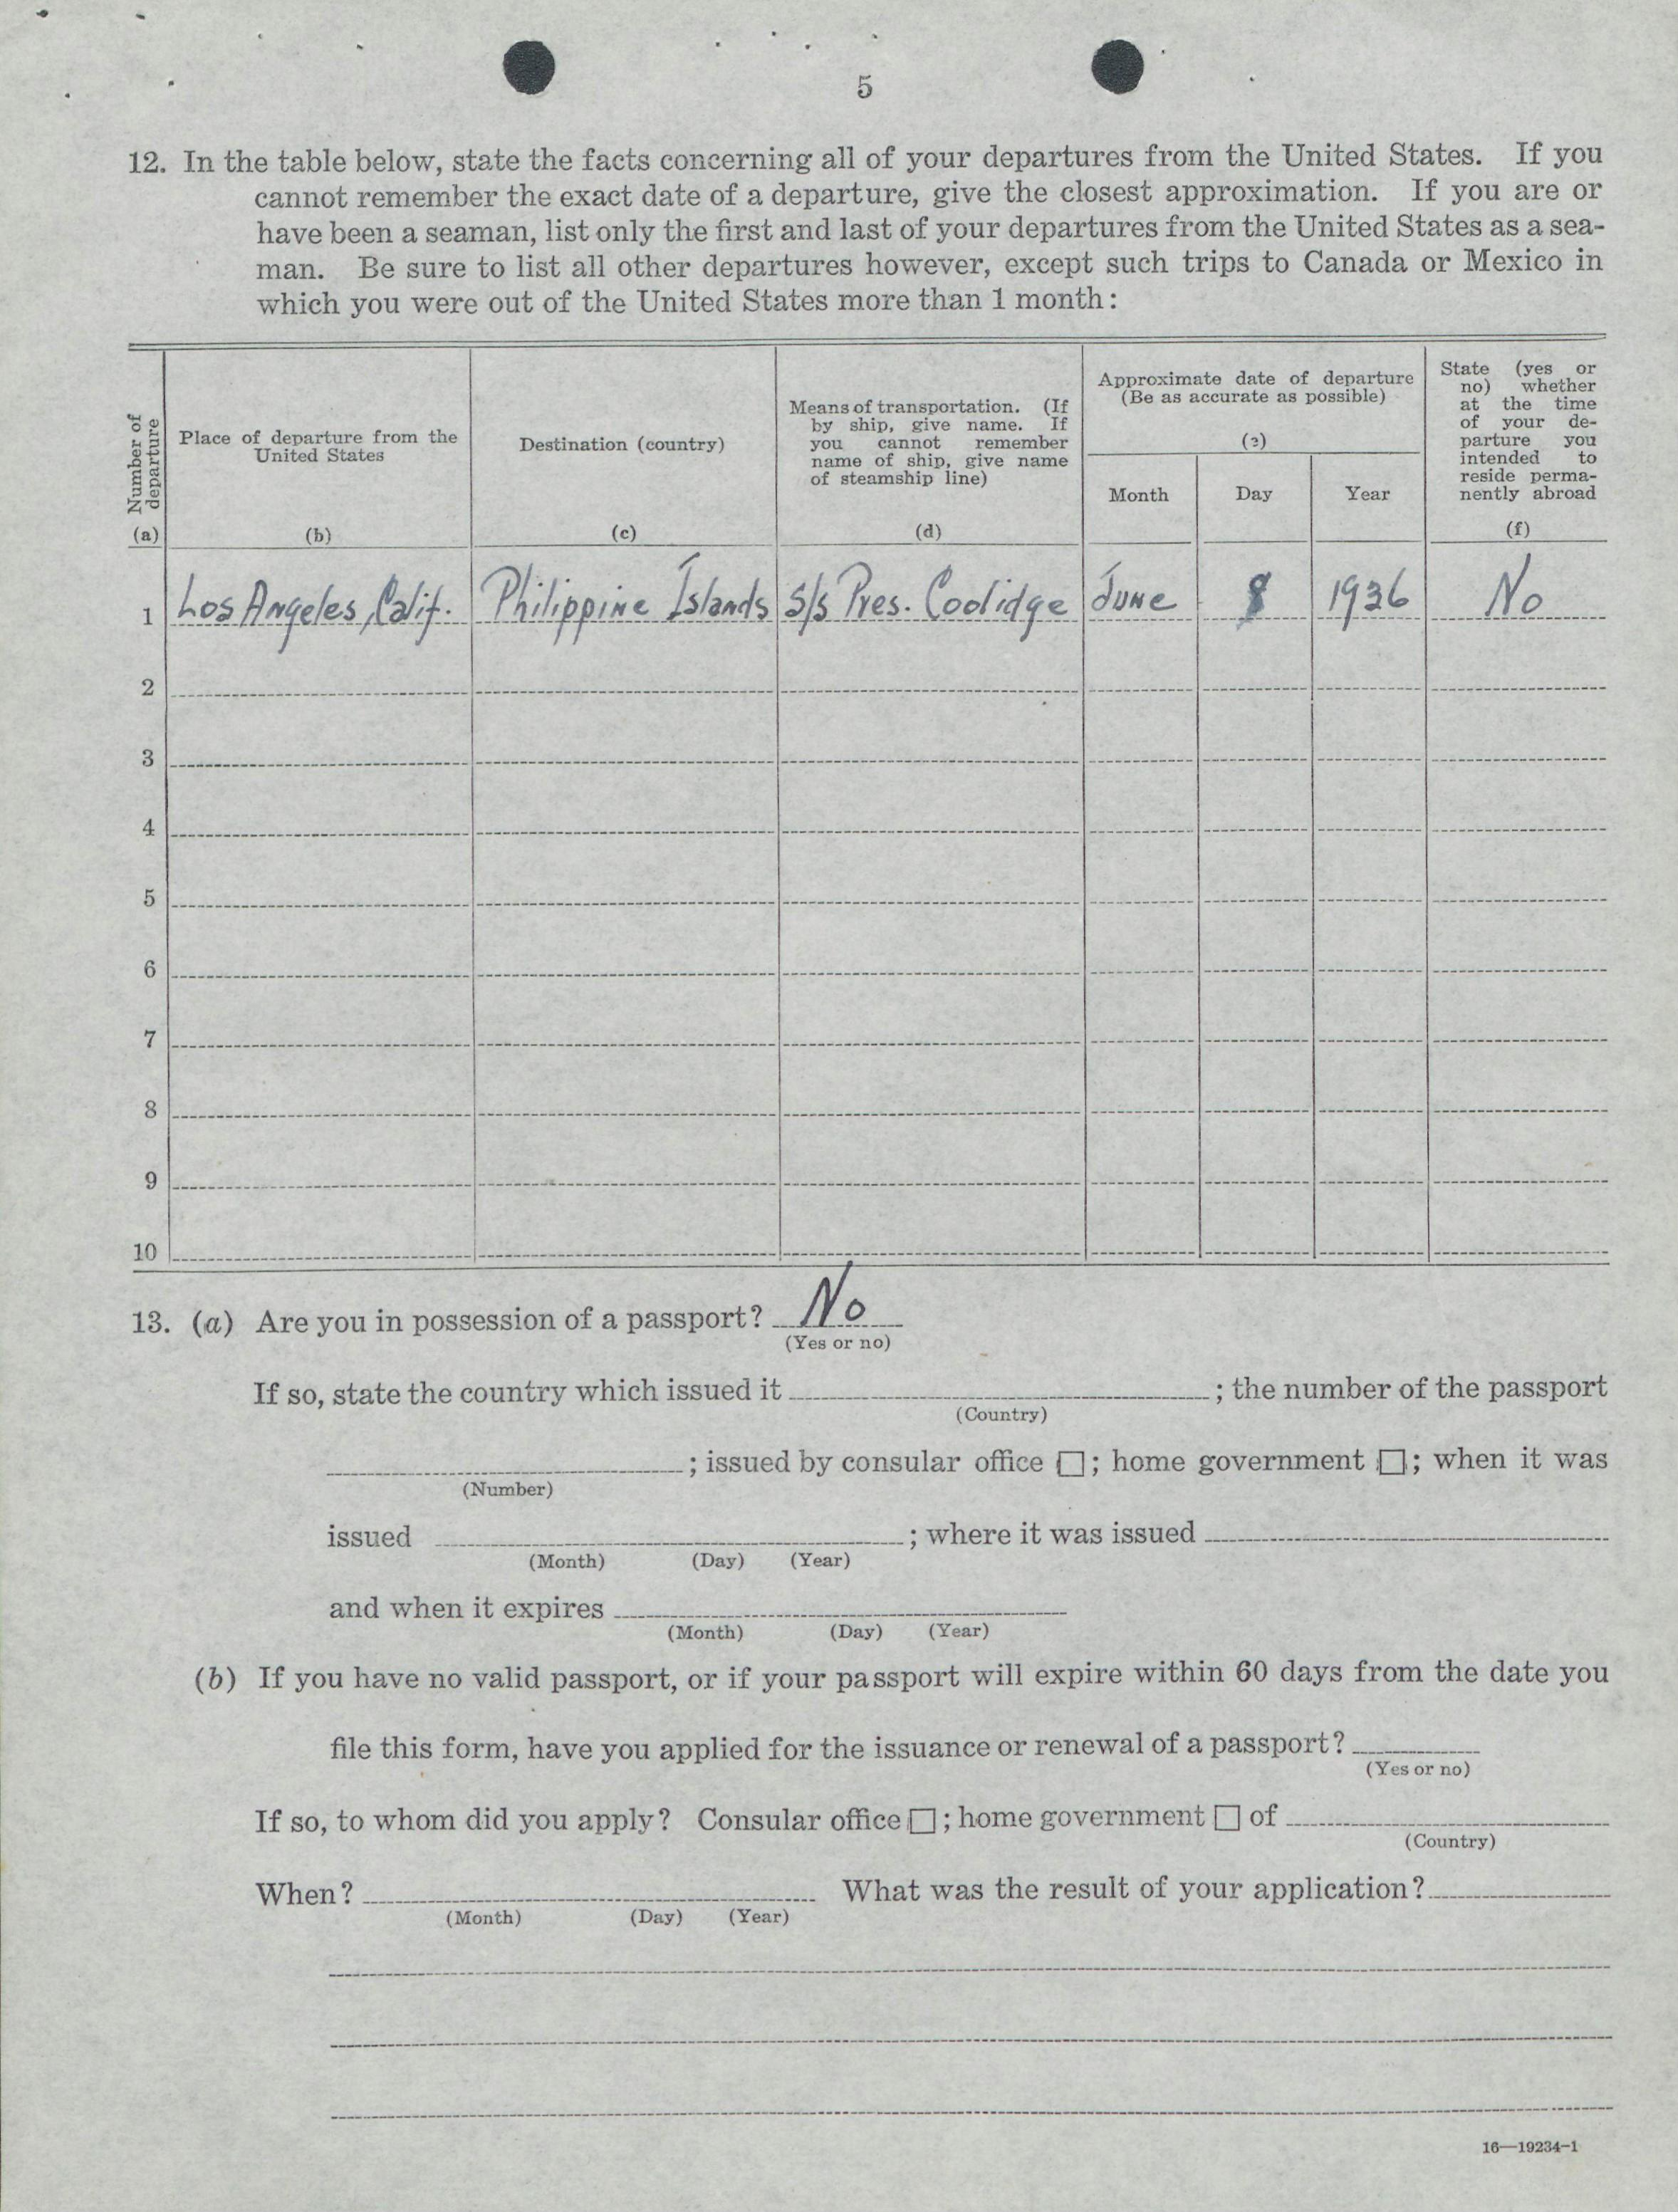 5
12. In the table below, state the facts concerning all of your departures from the United States. If you
cannot remember the exact date of a departure, give the closest approximation. If you are or
have been a seaman, list only the first and last of your departures from the United States as a sea-
man. Be sure to list all other departures however, except such trips to Canada or Mexico in
which you were out of the United States more than 1 month:
Number of
departure
(a)
Place of departure from the
United States
(b)
Destination (country)
(c)
Means of transportation. (If
by ship, give name. If
you cannot remember
name of ship, give name
of steamship line)
(d)
Approximate date of departure
(Be as accurate as possible)
(e)
Month Day Year
State (yes or
no) whether
at the time
of your de-
parture you
intended to
reside perma-
nently abroad
(f)
1 Los Angeles, Calif. Philippine Islands S/S Pres. Coolidge June 8 1936 No
2
3
4
5
6
7
8
9
10
13. (a) Are you in possession of a passport? No
(Yes or no)
If so, state the country which issued it ; the number of the passport
(Country)
; issued by consular office ☐; home government ☐; when it was
(Number)
issued ; where it was issued
(Month) (Day) (Year)
and when it expires
(Month) (Day) (Year)
(b) If you have no valid passport, or if your passport will expire within 60 days from the date you
file this form, have you applied for the issuance or renewal of a passport?
(Yes or no)
If so, to whom did you apply? Consular office ☐; home government ☐ of
(Country)
When? What was the result of your application?
(Month) (Day) (Year)
16—19234-1